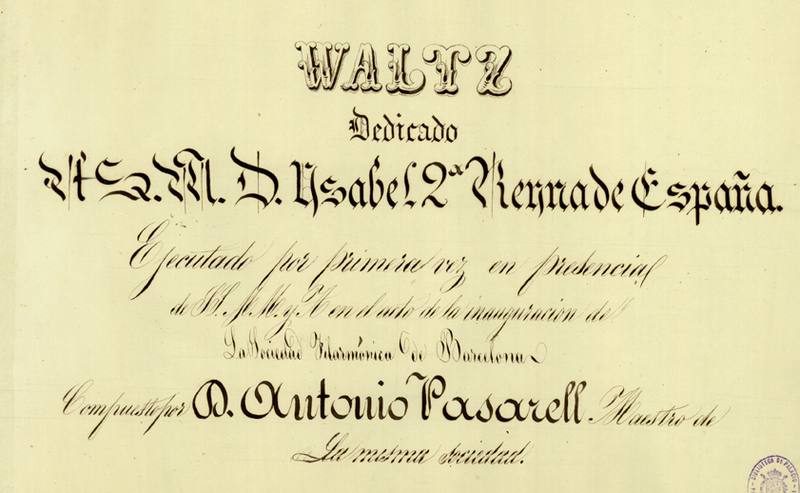 WALTZ
Dedicado
A S. M. D. Ysabel 2ª Reyna de España.
Ejecutado por primera vez en presencia
de SS. M.M. y A en el acto de la inauguración de
La Sociedad Filarmónica de Barcelona
Compuesto por D. Antonio Pasarell. Maestro de
La misma sociedad.
BIBLIOTECA DE PALACIO